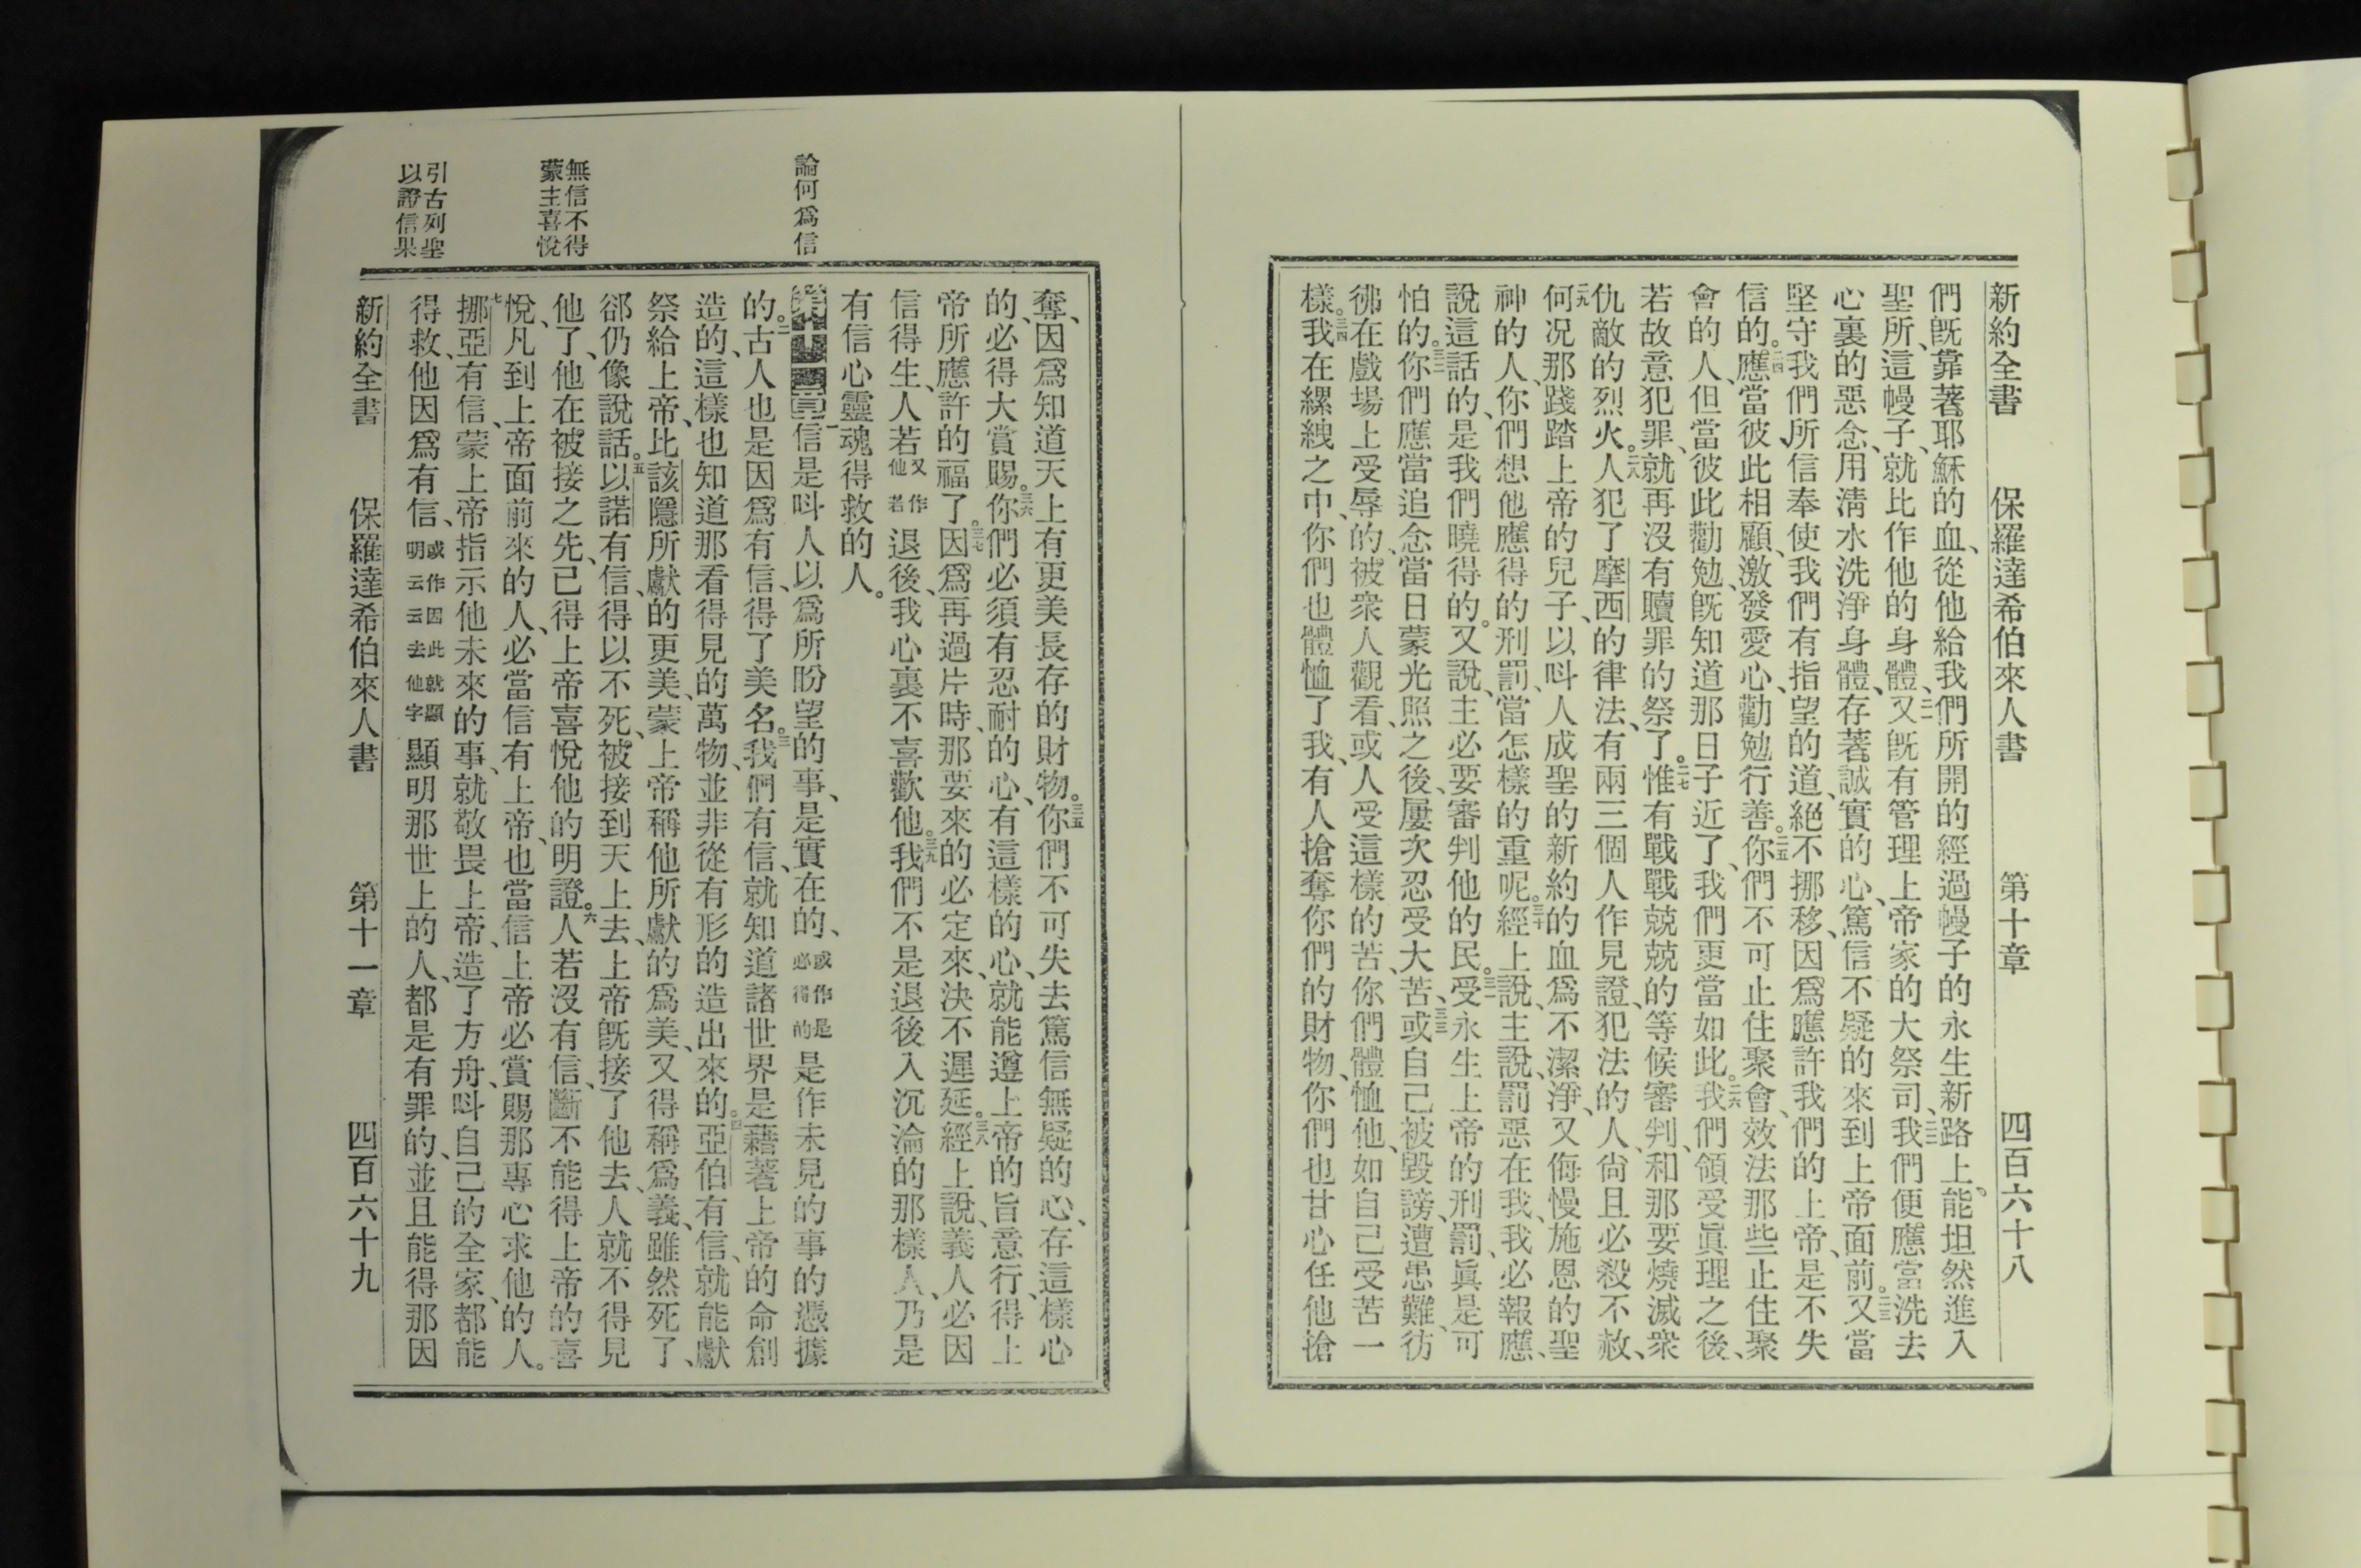 新約全書　保羅達希伯來人書　第十章　四百六十八
們旣靠著耶穌的血、從他給我們所開的經過幔子的永生新路上、能坦然進入
聖所、這幔子、就比作他的身體、二一又旣有管理上帝家的大祭司、二二我們便應當洗去
心裏的惡念、用淸水洗淨身體、存著誠實的心、篤信不疑的來到上帝面前。二三又當
堅守我們所信奉使我們有指望的道、絕不挪移、因爲應許我們的上帝、是不失
信的。二四應當彼此相顧、激發愛心、勸勉行善。二五你們不可止住聚會、效法那些止住聚
會的人、但當彼此勸勉、旣知道那日子近了、我們更當如此。二六我們領受眞理之後、
若故意犯罪、就再沒有贖罪的祭了。二七惟有戰戰兢兢的等候審判、和那要燒滅衆
仇敵的烈火。二八人犯了摩西的律法、有兩三個人作見證、犯法的人、尙且必殺不赦、
二九何况那踐踏上帝的兒子、以呌人成聖的新約的血爲不潔淨、又侮慢施恩的聖
神的人、你們想他應得的刑罰、當怎樣的重呢。三十經上說、主說、罰惡在我、我必報應、
說這話的、是我們曉得的。又說、主必要審判他的民。三一受永生上帝的刑罰、眞是可
怕的。三二你們應當追念當日蒙光照之後、屢次忍受大苦、三三或自己被毀謗、遭患難、彷
彿在戲場上受辱的、被衆人觀看、或人受這樣的苦、你們體恤他、如自己受苦一
樣。三四我在縲絏之中、你們也體恤了我、有人搶奪你們的財物、你們也甘心任他搶
奪、因爲知道天上有更美長存的財物。三五你們不可失去篤信無疑的心、存這樣心
的、必得大賞賜。三六你們必須有忍耐的心、有這樣的心、就能遵上帝的旨意行、得上
帝所應許的福了。三七因爲再過片時、那要來的必定來、決不遲延。三八經上說、義人必因
信得生、人若又作他若退後、我心裏不喜歡他。三九我們不是退後入沉淪的那樣人、乃是
有信心靈魂得救的人。
論何爲信
第十一章一信是呌人以爲所盼望的事、是實在的、或作是必得的是作未見的事的憑據
的。二古人也是因爲有信、得了美名。三我們有信、就知道諸世界是藉著上帝的命創
造的、這樣也知道那看得見的萬物、並非從有形的造出來的。四亞伯有信、就能獻
祭給上帝、比該隱所獻的更美、蒙上帝稱他所獻的爲美、又得稱爲義、雖然死了、
郤仍像說話。五以諾有信、得以不死、被接到天上去、上帝旣接了他去、人就不得見
無信不得蒙主喜悅
他了、他在被接之先、已得上帝喜悅他的明證。六人若沒有信、斷不能得上帝的喜
悅、凡到上帝面前來的人、必當信有上帝、也當信上帝必賞賜那專心求他的人。
七挪亞有信、蒙上帝指示他未來的事、就敬畏上帝、造了方舟、呌自己的全家、都能
引古列聖以證信果
得救、他因爲有信、或作因此就顯明云云去他字顯明那世上的人、都是有罪的、並且能得那因
新約全書　保羅達希伯來人書　第十一章　四百六十九